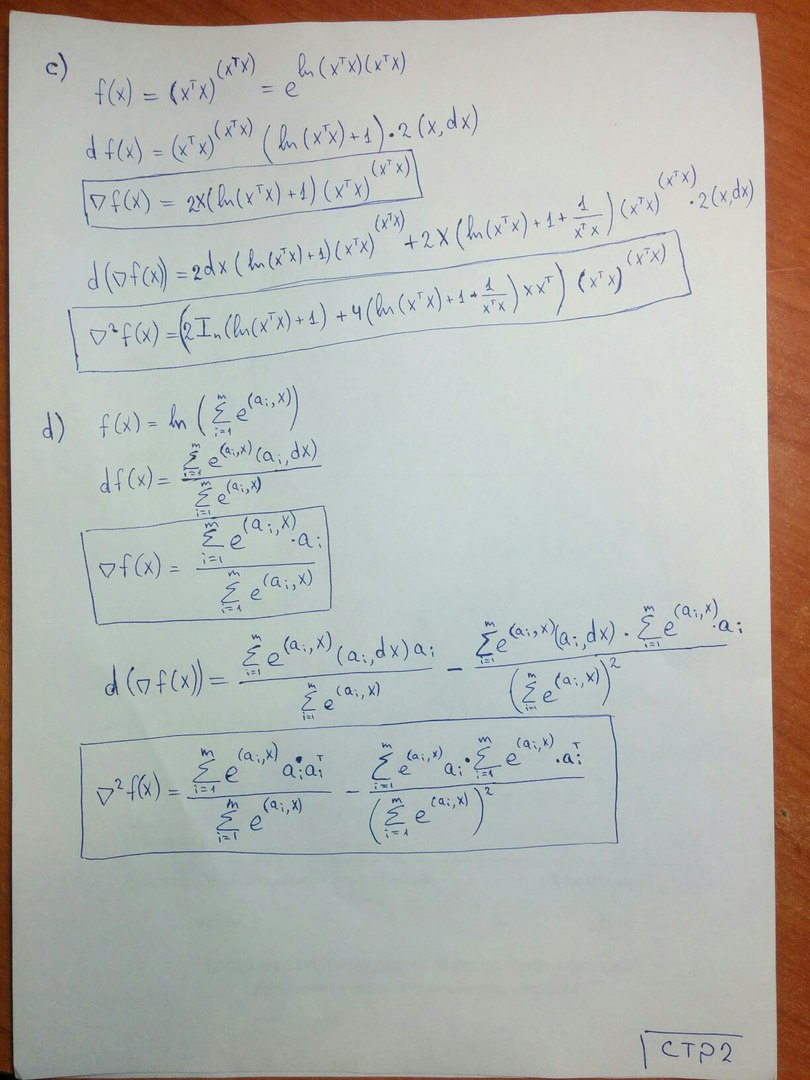 c) f(x) = (xᵀx)^(xᵀx) = e^(ln(xᵀx)(xᵀx))
df(x) = (xᵀx)^(xᵀx) (ln(xᵀx)+1)·2(x,dx)
∇f(x) = 2x(ln(xᵀx)+1)(xᵀx)^(xᵀx)
d(∇f(x)) = 2dx(ln(xᵀx)+1)(xᵀx)^(xᵀx) + 2x(ln(xᵀx)+1+1/(xᵀx))(xᵀx)^(xᵀx)·2(x,dx)
∇²f(x) = (2Iₙ(ln(xᵀx)+1) + 4(ln(xᵀx)+1+1/(xᵀx))xxᵀ)(xᵀx)^(xᵀx)
d) f(x) = ln(∑_{i=1}^m e^(aᵢ,x))
df(x) = ∑_{i=1}^m e^(aᵢ,x)(aᵢ,dx) / ∑_{i=1}^m e^(aᵢ,x)
∇f(x) = ∑_{i=1}^m e^(aᵢ,x)·aᵢ / ∑_{i=1}^m e^(aᵢ,x)
d(∇f(x)) = ∑_{i=1}^m e^(aᵢ,x)(aᵢ,dx)aᵢ / ∑_{i=1}^m e^(aᵢ,x) − ∑_{i=1}^m e^(aᵢ,x)(aᵢ,dx)·∑_{i=1}^m e^(aᵢ,x)·aᵢ / (∑_{i=1}^m e^(aᵢ,x))²
∇²f(x) = ∑_{i=1}^m e^(aᵢ,x) aᵢaᵢᵀ / ∑_{i=1}^m e^(aᵢ,x) − ∑_{i=1}^m e^(aᵢ,x) aᵢ·∑_{i=1}^m e^(aᵢ,x)·aᵢᵀ / (∑_{i=1}^m e^(aᵢ,x))²
СТР2